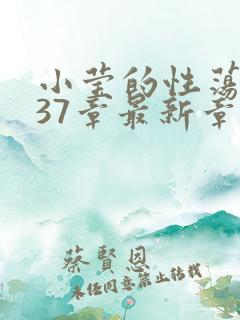 小莹的性荡
37章最新章
蔡賢恩
未任同意禁止转载